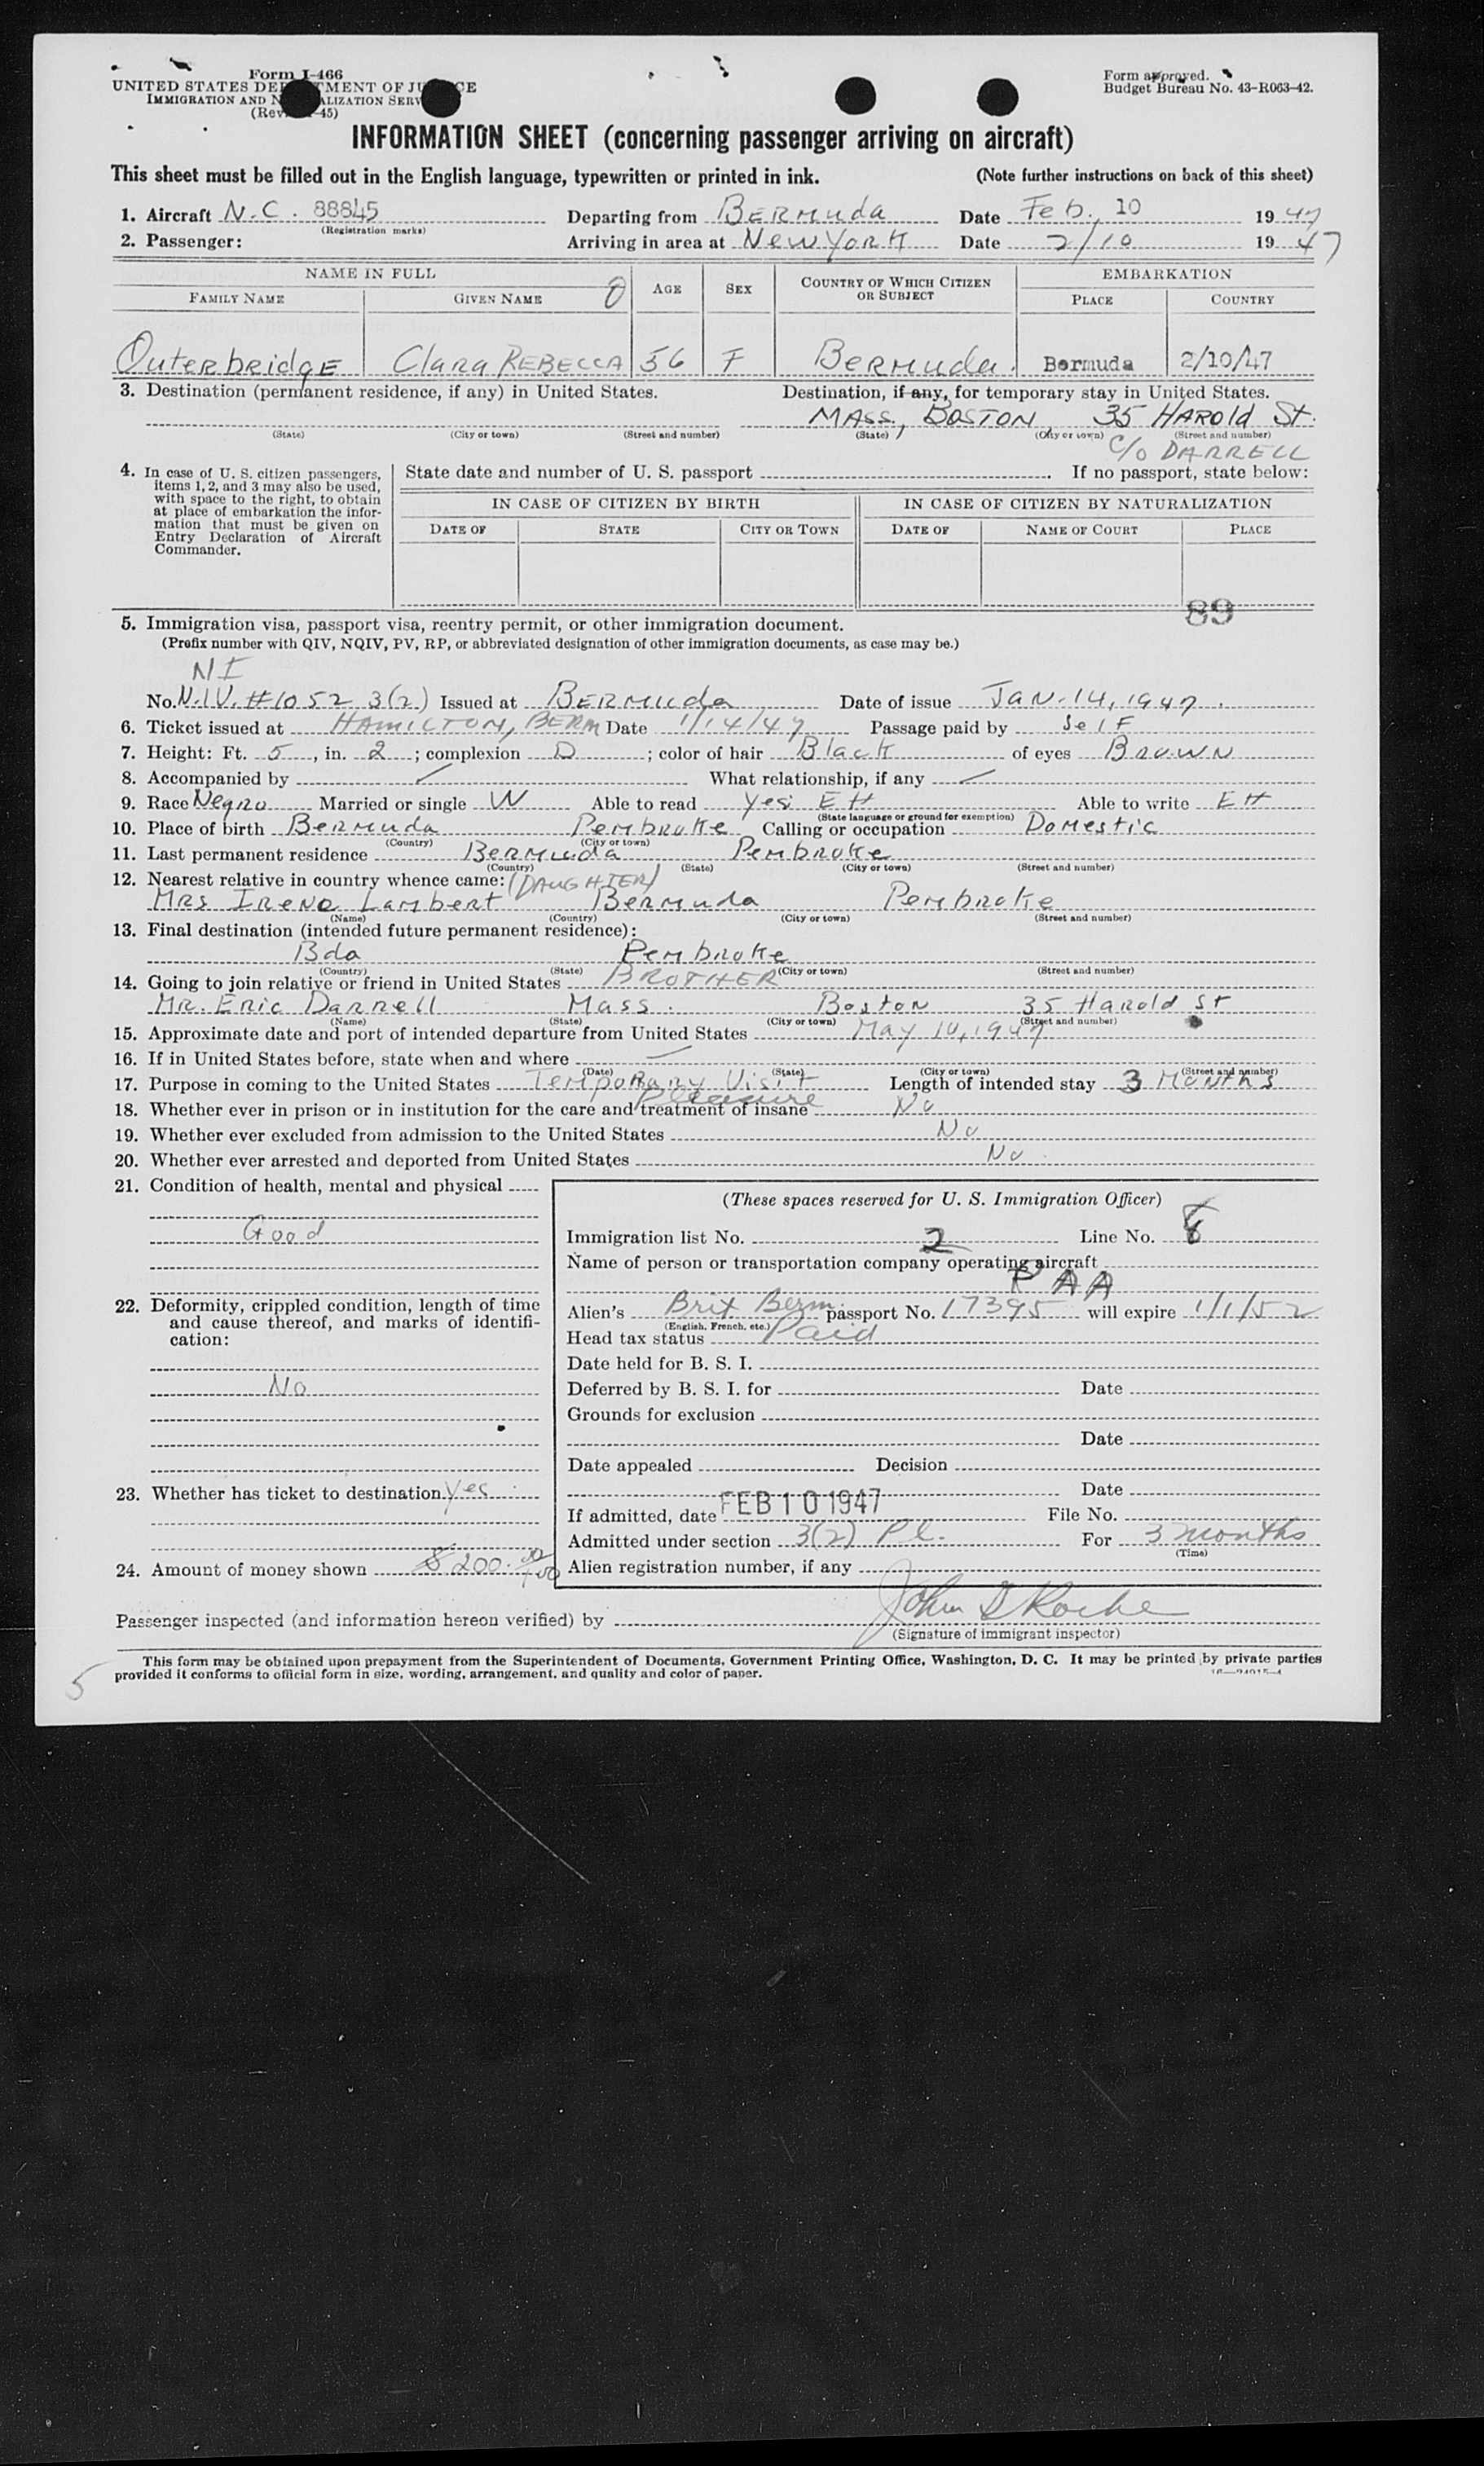 Form I-466
UNITED STATES DEPARTMENT OF JUSTICE
IMMIGRATION AND NATURALIZATION SERVICE
(Rev. -45)
Form approved.
Budget Bureau No. 43-R063-42.
INFORMATION SHEET (concerning passenger arriving on aircraft)
This sheet must be filled out in the English language, typewritten or printed in ink. (Note further instructions on back of this sheet)
1. Aircraft N.C. 88845 Departing from BERMUda Date Feb. 10 1947
(Registration marks)
2. Passenger: Arriving in area at New York Date 2/10 1947
NAME IN FULL AGE SEX COUNTRY OF WHICH CITIZEN OR SUBJECT EMBARKATION
FAMILY NAME GIVEN NAME PLACE COUNTRY
OuterbridgE Clara REBECCA 56 F BERMuda. Bermuda 2/10/47
3. Destination (permanent residence, if any) in United States. Destination, if any, for temporary stay in United States.
MASS, BOSTON, 35 HAROld St.
(State) (City or town) (Street and number) (State) (City or town) (Street and number)
C/O DARRELL
4. In case of U. S. citizen passengers, items 1, 2, and 3 may also be used, with space to the right, to obtain at place of embarkation the information that must be given on Entry Declaration of Aircraft Commander.
State date and number of U. S. passport . If no passport, state below:
IN CASE OF CITIZEN BY BIRTH IN CASE OF CITIZEN BY NATURALIZATION
DATE OF STATE CITY OR TOWN DATE OF NAME OF COURT PLACE
89
5. Immigration visa, passport visa, reentry permit, or other immigration document.
(Prefix number with QIV, NQIV, PV, RP, or abbreviated designation of other immigration documents, as case may be.)
NI
No. N.I.V. #1052 3(2) Issued at BERMUda Date of issue JAN. 14, 1947.
6. Ticket issued at HAMILTON, BERM Date 1/14/47 Passage paid by SelF
7. Height: Ft. 5, in. 2; complexion D; color of hair Black of eyes BROWN
8. Accompanied by ✓ What relationship, if any ✓
9. Race Negro Married or single W Able to read Yes EH Able to write EH
(State language or ground for exemption)
10. Place of birth Bermuda Pembroke Calling or occupation Domestic
(Country) (City or town)
11. Last permanent residence BERMuda Pembroke
(Country) (State) (City or town) (Street and number)
12. Nearest relative in country whence came: (DAUGHTER)
MRS IRENE Lambert Bermuda Pembroke
(Name) (Country) (City or town) (Street and number)
13. Final destination (intended future permanent residence):
Bda Pembroke
(Country) (State) (City or town) (Street and number)
14. Going to join relative or friend in United States BROTHER
MR. Eric Darrell Mass. Boston 35 Harold St
(Name) (State) (City or town) (Street and number)
15. Approximate date and port of intended departure from United States May 10, 1947
16. If in United States before, state when and where
(Date) (State) (City or town) (Street and number)
17. Purpose in coming to the United States Temporary Visit Length of intended stay 3 Months
Pleasure
18. Whether ever in prison or in institution for the care and treatment of insane No
19. Whether ever excluded from admission to the United States No
20. Whether ever arrested and deported from United States No
21. Condition of health, mental and physical
Good
22. Deformity, crippled condition, length of time and cause thereof, and marks of identification:
No
23. Whether has ticket to destination yes
24. Amount of money shown $200.00/100
(These spaces reserved for U. S. Immigration Officer)
Immigration list No. 2 Line No. 8
Name of person or transportation company operating aircraft
PAA
Alien's Brit Berm passport No. 17395 will expire 1/1/52
(English, French, etc.)
Head tax status Paid
Date held for B. S. I.
Deferred by B. S. I. for Date
Grounds for exclusion
Date
Date appealed Decision
Date
If admitted, date FEB 10 1947 File No.
Admitted under section 3(2) Pl. For 3 months
(Time)
Alien registration number, if any
Passenger inspected (and information hereon verified) by John D Roche
(Signature of immigrant inspector)
This form may be obtained upon prepayment from the Superintendent of Documents, Government Printing Office, Washington, D. C. It may be printed by private parties
provided it conforms to official form in size, wording, arrangement, and quality and color of paper.
5